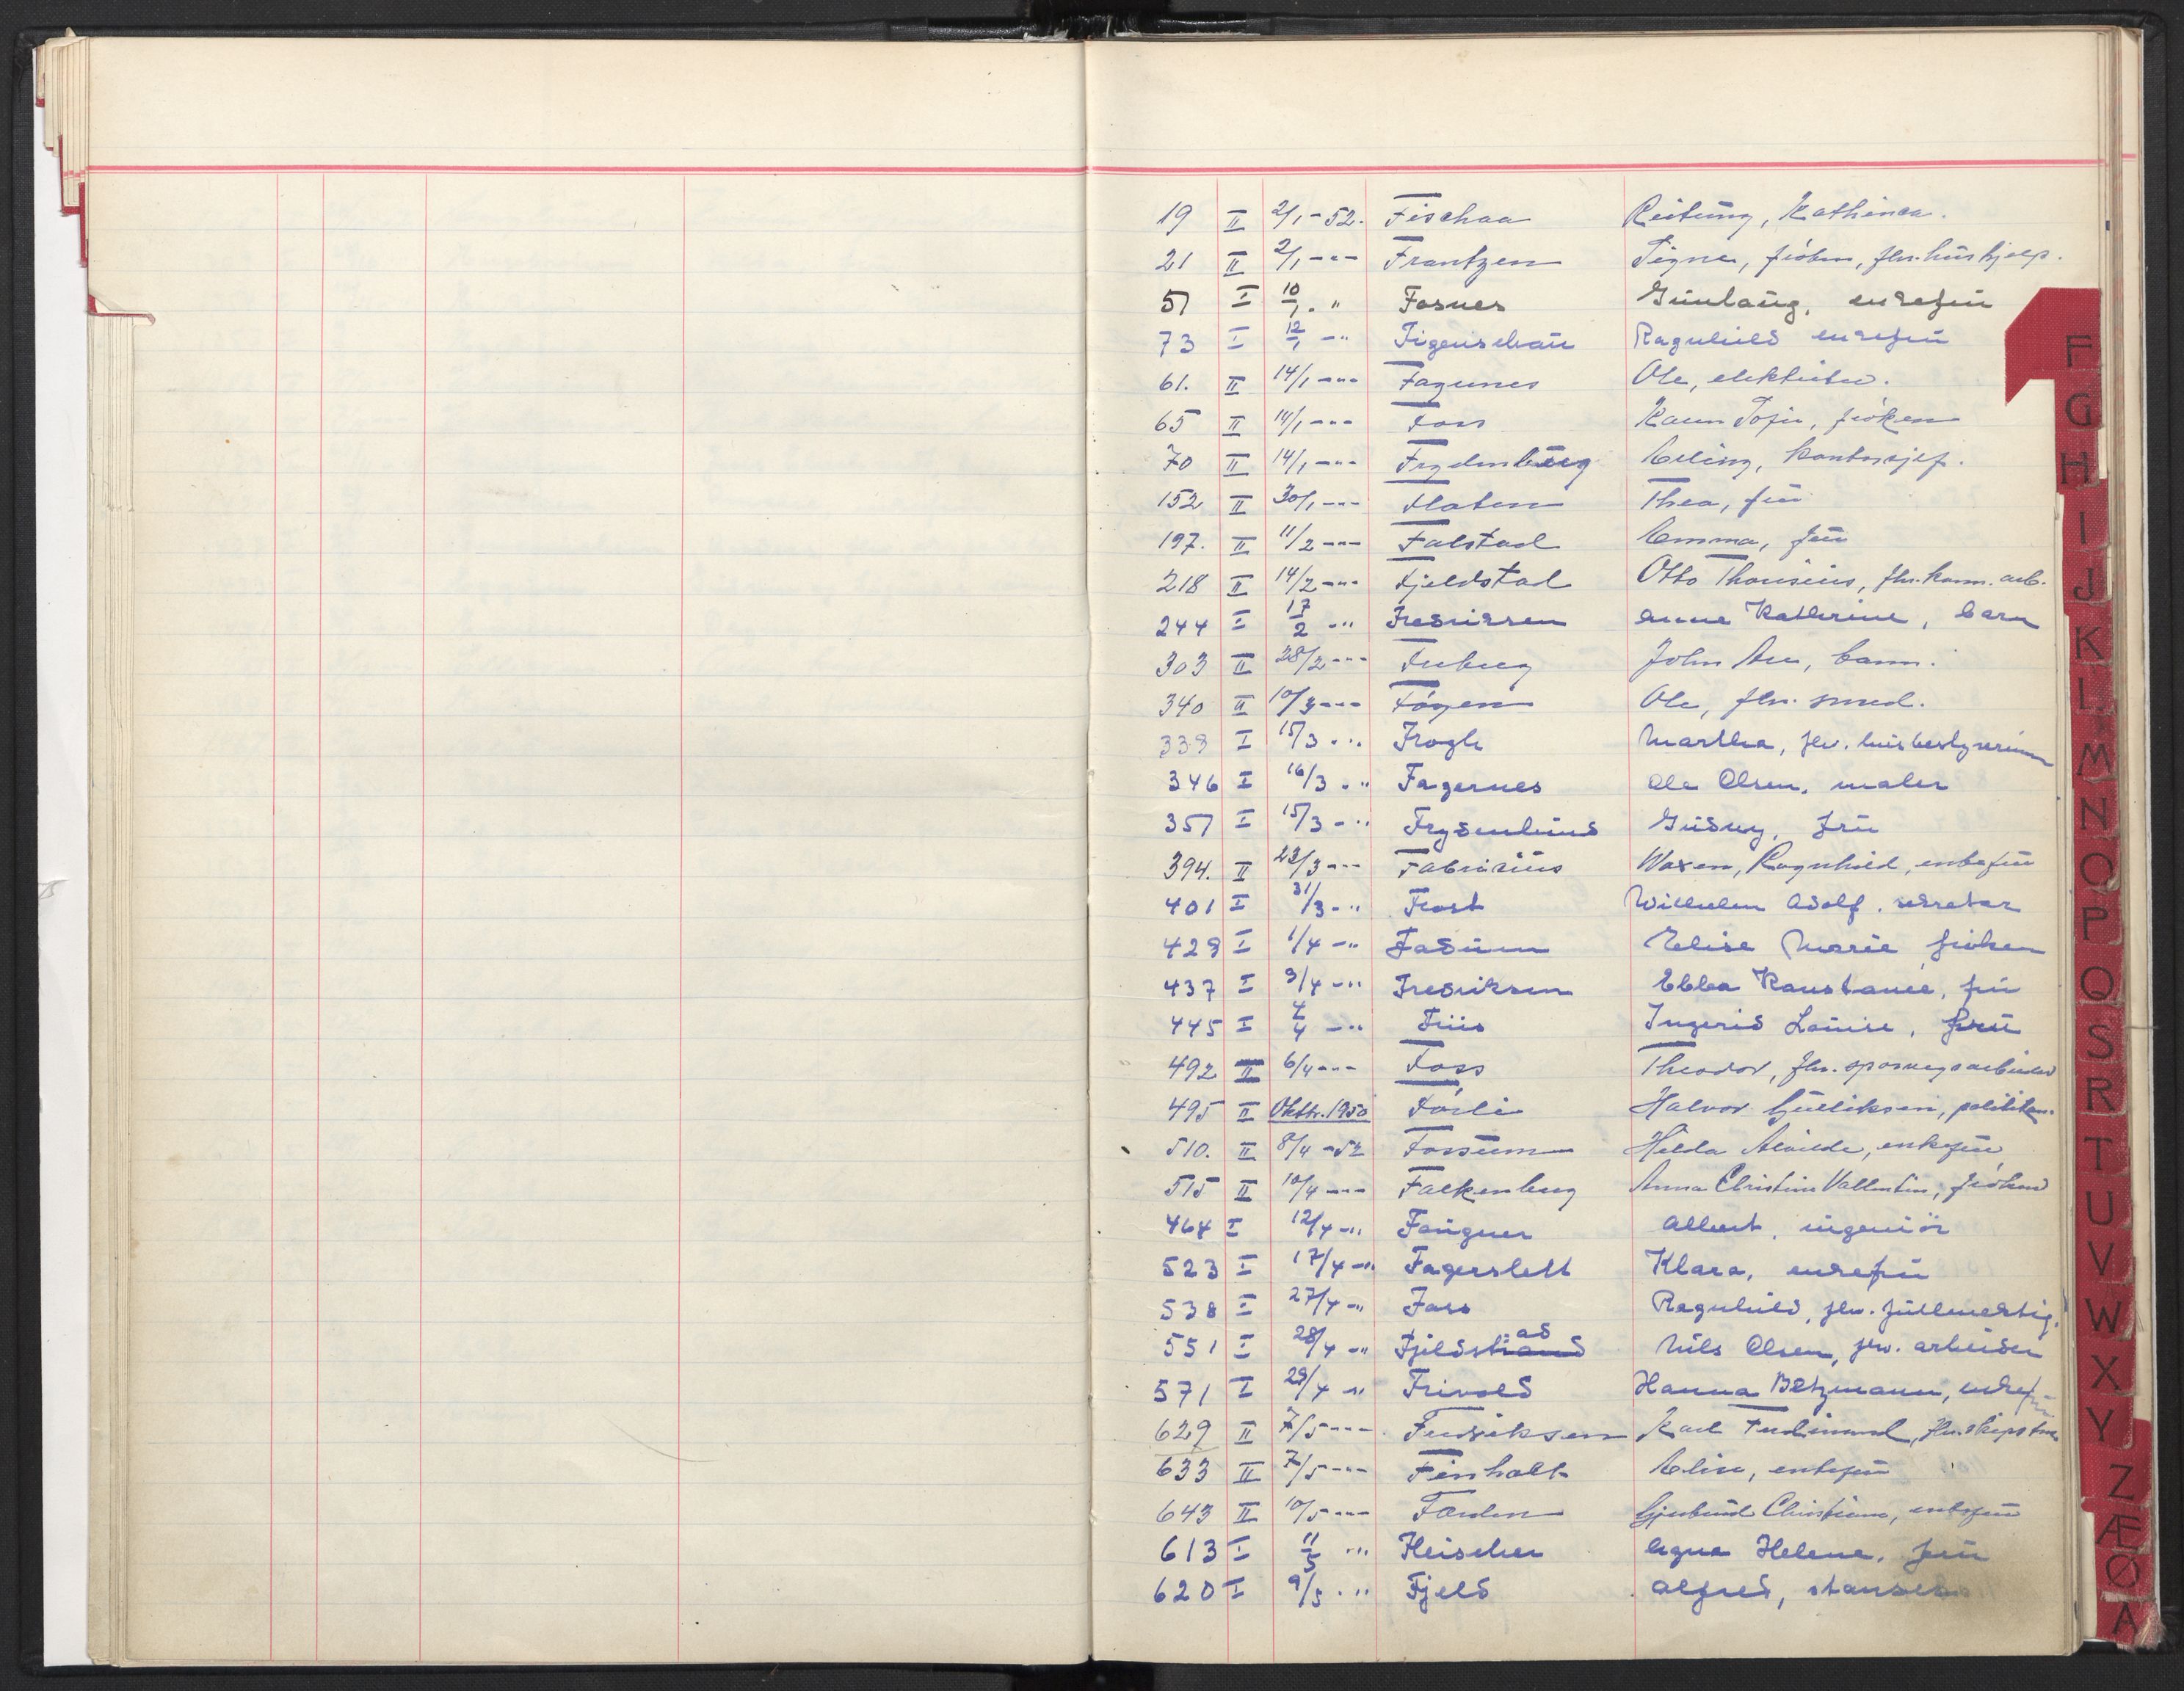 19 II 2/1-52. Fischaa Reitung, Kathinca.
21 II 2/1 -"- Frantzen Signe, frøken, fhv. hushjelp.
51 I 10/1 - " Fosnes Gunlaug, enkefru
73 I 12/1 - " Figenschau Ragnhild enkefru
61. II 14/1 -"- Fagernes Ole, elektriker.
65 II 14/1 -"- Foss Karen Sofie, frøken
70 II 14/1 -"- Frydenberg Erling, kontorsjef.
152 II 30/1 -"- Flaten Thea, fru
197. II 11/2 -"- Falstad Emma, fru
218 II 14/2 -"- Fjeldstad Otto Thorsius, fhv. komm. arb.
244 I 17/2 - " Fredriksen Anne Kathrine, barn
303 II 28/2 -"- Freberg John Are, barn.
340 II 10/3 -"- Føyen Ole, fhv. smed.
339 I 15/3 - " Frogh Martha, fhv. husbestyrerinne
346 I 16/3 - " Fagernes Ole Olsen, maler
351 I 15/3 - " Frydenlund Gudny, fru
394. II 23/3 -"- Fabricius Waxen, Ragnhild, enkefru
401 I 31/3 - " Frost Wilhelm Adolf, sekretær
429 I 1/4 - " Fadum Elise Marie, frøken
437 I 3/4 - " Fredriksen Ebba Konstance, fru
445 I 4/4 - " Friis Ingerid Louise, fru
492 II 6/4 -"- Foss Theodor, fhv. sporvegsarbeider
495 II Oktbr. 1950 Førli Halvor Gulliksen, politikon.
510. II 8/4 -52 Fossum Hilda Alvilde, enkefru
515 II 10/4 -"- Falkenberg Anna Christine Vallentin, frøken
464 I 12/4 - " Faugner Albert, ingeniør
523 I 17/4 - " Fagerslett Klara, enkefru
538 I 27/4 - " Foss Ragnhild, fhv. fullmektig.
551 I 28/4 - " Fjeldstrand ad Nils Olsen, fhv. arbeider
571 I 29/4 - " Frivold Hanna Betzmann, enkefru
629 II 7/5 -"- Fredriksen Karl Ferdinand, fhv. skipstm.
633 II 7/5 -"- Finholt Elise, enkefru
643 II 10/5 -"- Førden Gjertrud Christiane, enkefru
613 I 11/5 - " Fleischer Agna Helene, fru
620 I 9/5 - " Fjeld Alfred, stanser
F
G
H
I
J
K
L
M
N
O
P
Q
S
R
T
U
V
W
X
Y
Z
Æ
Ø
A